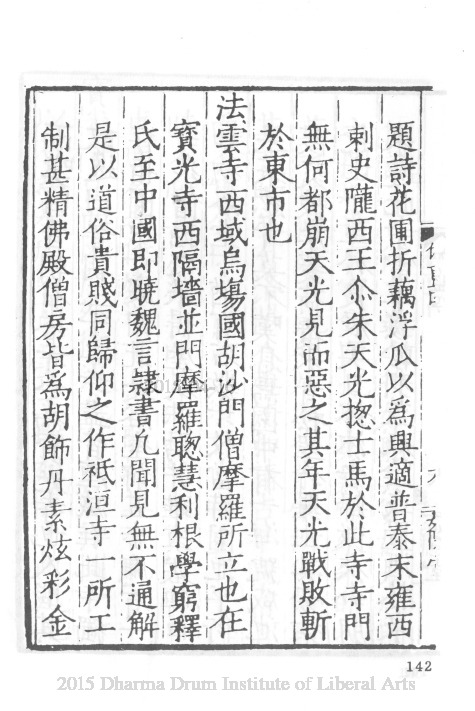 題詩花圃折藕浮瓜以爲興適普泰末雍西
刺史隴西王尒朱天光揔士馬於此寺寺門
無何都崩天光見而惡之其年天光戰敗斬
於東市也
法雲寺西域烏場國胡沙門僧摩羅所立也在
寶光寺西隔墻並門摩羅聦慧利根學窮釋
氏至中國即曉魏言隷書凡聞見無不通解
是以道俗貴賤同歸仰之作祗洹寺一所工
制甚精佛殿僧房皆爲胡飾丹素炫彩金
142
2015 Dharma Drum Institute of Liberal Arts